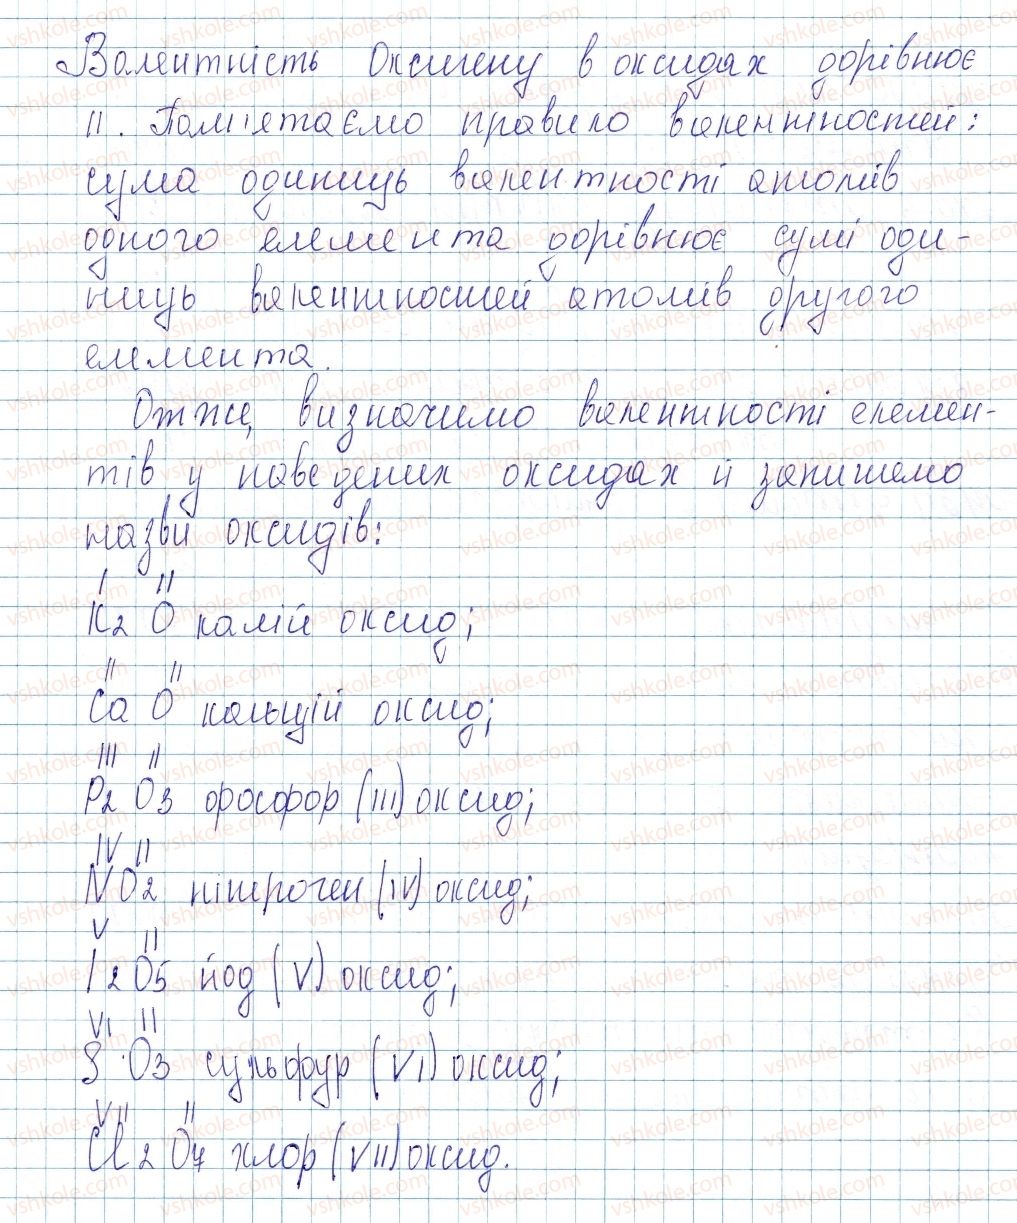 Валентність Оксигену в оксидах дорівнює
II. Пам'ятаємо правило валентностей:
сума одиниць валентності атомів
одного елемента дорівнює сумі оди-
ниць валентностей атомів другого
елемента.
Отже, визначимо валентності елемен-
тів у наведених оксидах й запишемо
назви оксидів:
I II
K2 O калій оксид;
II II
Ca O кальцій оксид;
III II
P2 O3 фосфор (III) оксид;
IV II
NO2 нітроген (IV) оксид;
V II
I2 O5 йод (V) оксид;
VI II
S O3 сульфур (VI) оксид;
VII II
Cl2 O7 хлор (VII) оксид.